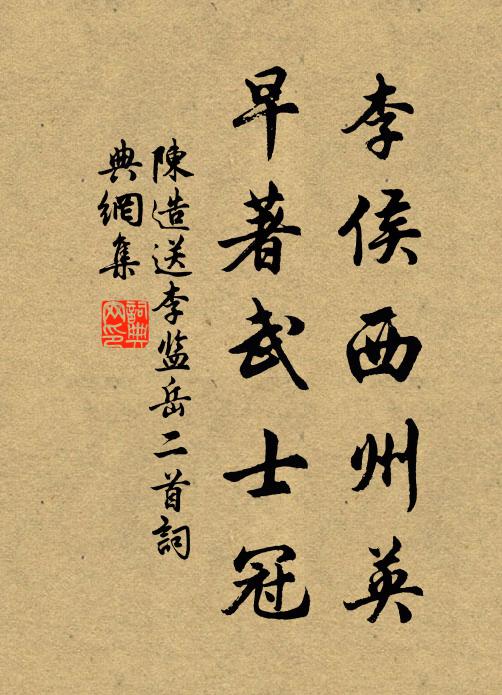 李侯西州英
早著武士冠
陳造送李监岳二首詞
典網集
詞典
网印